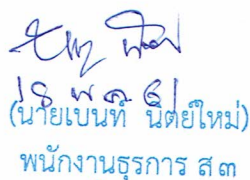 ๑๘ พ.ค. ๖๑
(นายเบนท์ นิตย์ใหม่)
พนักงานธุรการ ส ๓